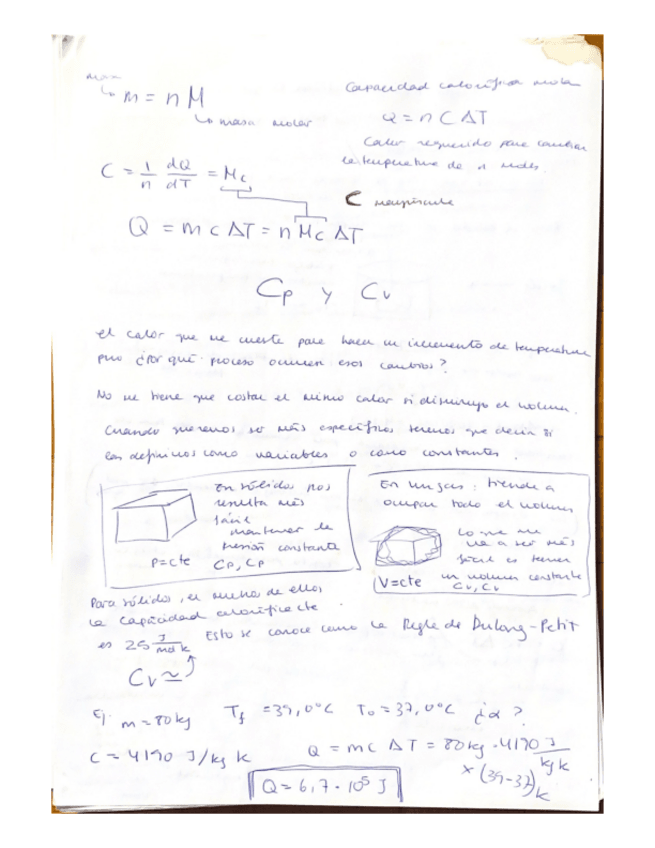 masa
↳ m = n M
↳ masa molar
Capacidad calorífica molar
Q = n C ΔT
Calor requerido para cambiar
la temperatura de n moles.
C = 1/n dQ/dT = Mc
C mayúscula
Q = m c ΔT = n Mc ΔT
Cp y Cv
el calor que me cuesta para hacer un incremento de temperatura
pero ¿Por qué proceso ocurren esos cambios?
No me tiene que costar el mismo calor si disminuyo el volumen.
Cuando queremos ser más específicos tenemos que decir si
los definimos como variables o como constantes.
En sólidos nos
resulta más
fácil
mantener la
presión constante
P=cte Cp, Cp
En un gas: tiende a
ocupar todo el volumen
Lo que me
va a ser más
fácil es tener
V=cte un volumen constante
Cv, Cv
Para sólidos, en muchos de ellos
la capacidad calorífica cte
es 25 J/mol k Esto se conoce como la Regla de Dulong-Petit
Cv ≃
Ej. m = 80 kg Tf = 39,0°C T0 = 37,0°C ¿Q?
C = 4190 J/kg k Q = m c ΔT = 80 kg · 4190 J/kg k
× (39-37) k
Q = 6,7 · 10⁵ J